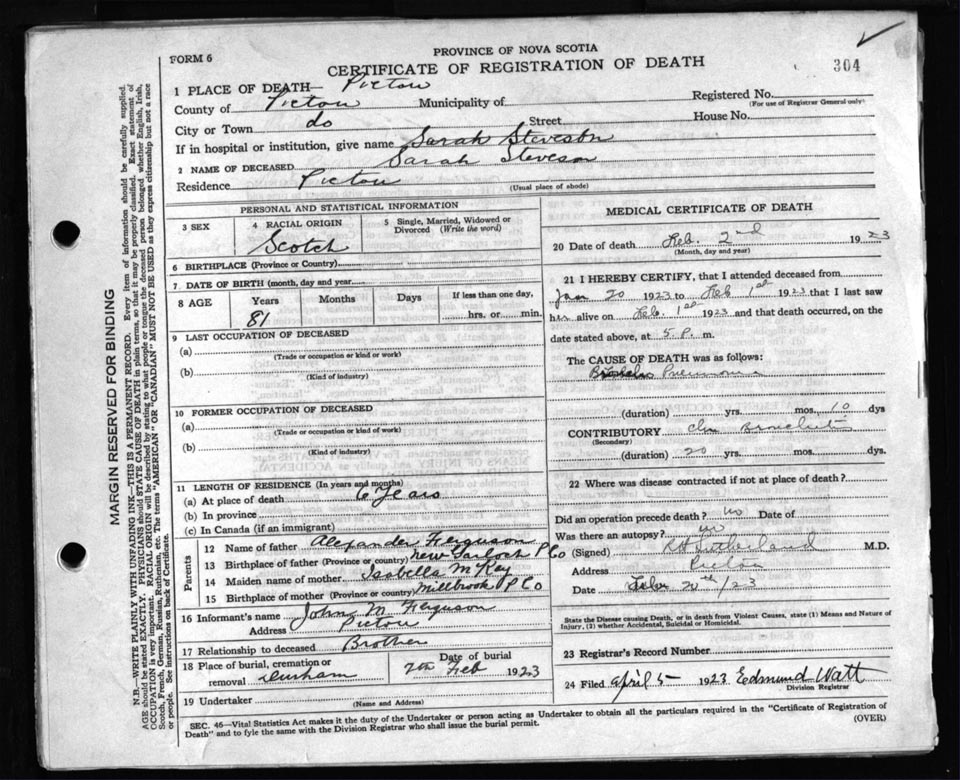 FORM 6
PROVINCE OF NOVA SCOTIA
CERTIFICATE OF REGISTRATION OF DEATH
304
1 PLACE OF DEATH— Pictou
Registered No.
(For use of Registrar General only)
County of Pictou Municipality of
City or Town do Street House No.
If in hospital or institution, give name Sarah Steveson
2 NAME OF DECEASED Sarah Steveson
Residence Pictou
(Usual place of abode)
PERSONAL AND STATISTICAL INFORMATION
3 SEX
4 RACIAL ORIGIN
Scotch
5 Single, Married, Widowed or Divorced (Write the word)
6 BIRTHPLACE (Province or Country)
7 DATE OF BIRTH (month, day and year)
8 AGE Years Months Days If less than one day,
81 hrs. or min.
9 LAST OCCUPATION OF DECEASED
(a)
(Trade or occupation or kind or work)
(b)
(Kind of industry)
10 FORMER OCCUPATION OF DECEASED
(a)
(Trade or occupation or kind of work)
(b)
(Kind of industry)
11 LENGTH OF RESIDENCE (In years and months)
(a) At place of death 6 Years
(b) In province
(c) In Canada (if an immigrant)
Parents
12 Name of father Alexander Ferguson
13 Birthplace of father (Province or country) New Garloch P Co
14 Maiden name of mother Isabella McKay
15 Birthplace of mother (Province or country) Millbrook P Co
16 Informant's name John M. Ferguson
Address Pictou
17 Relationship to deceased Brother
18 Place of burial, cremation or removal Durham
Date of burial
7th Feb 1923
19 Undertaker
(Name and Address)
MEDICAL CERTIFICATE OF DEATH
20 Date of death Feb. 2nd 1923
(Month, day and year)
21 I HEREBY CERTIFY, that I attended deceased from
Jan 20 1923 to Feb 1st 1923 that I last saw
her alive on Feb. 1st 1923 and that death occurred, on the
date stated above, at 5 P. m.
The CAUSE OF DEATH was as follows:
Pneumonia
(duration) yrs. mos. 10 dys
CONTRIBUTORY
(Secondary)
(duration) 20 yrs. mos. dys.
22 Where was disease contracted if not at place of death?
Did an operation precede death? no Date of
Was there an autopsy? no
(Signed) Sutherland M.D.
Address Pictou
Date 20th/23
State the Disease causing Death, or in death from Violent Causes, state (1) Means and Nature of
Injury, (2) whether Accidental, Suicidal or Homicidal.
23 Registrar's Record Number
24 Filed April 5 1923 Edmund Watt
Division Registrar
SEC. 46—Vital Statistics Act makes it the duty of the Undertaker or person acting as Undertaker to obtain all the particulars required in the "Certificate of Registration of
Death" and to fyle the same with the Division Registrar who shall issue the burial permit.
(OVER)
MARGIN RESERVED FOR BINDING
N.B.—WRITE PLAINLY WITH UNFADING INK—THIS IS A PERMANENT RECORD. Every item of information should be carefully supplied.
AGE should be stated EXACTLY. PHYSICIANS should STATE CAUSE OF DEATH in plain terms, so that it may be properly classified. Exact statement of
OCCUPATION is very important. RACIAL ORIGIN will be described by stating to what people or tongue the deceased person belonged whether English, Irish,
Scotch, French, German, Russian, Ruthenian, etc. The terms "AMERICAN" OR "CANADIAN" MUST NOT BE USED as they express citizenship but not a race
or people. See instructions on back of Certificate.